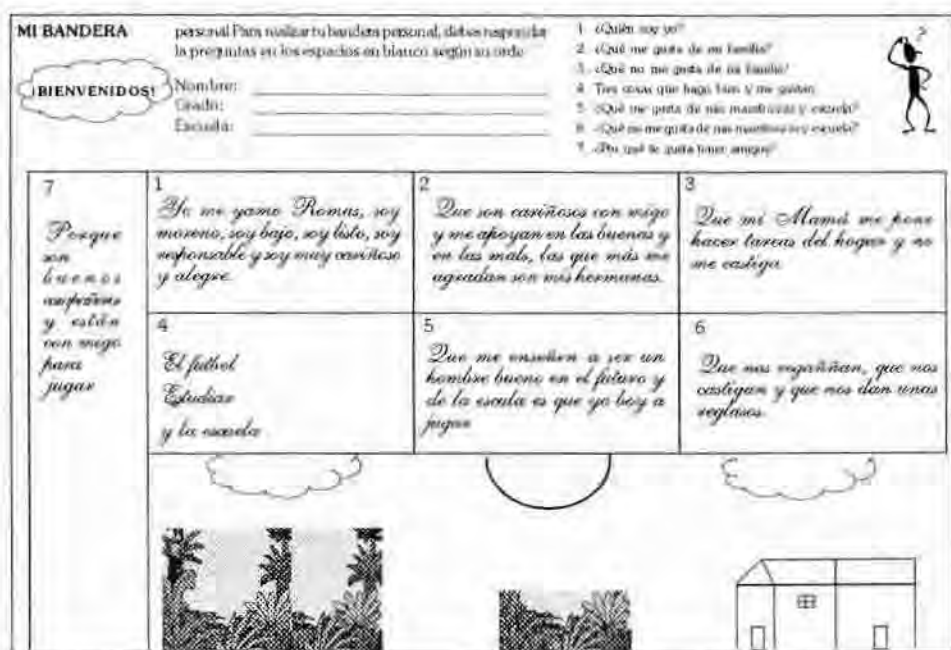 MI BANDERA
personal Para realizar tu bandera personal, debes responder
la preguntas en los espacios en blanco según su orde
¡BIENVENIDOS!
Nombre:
Grado:
Escuela:
1. ¿Quién soy yo?
2. ¿Qué me gusta de mi familia?
3. ¿Qué no me gusta de mi familia?
4. Tres cosas que hago bien y me gustan
5. ¿Qué me gusta de mis maestros/as y escuela?
6. ¿Qué no me gusta de mis maestros/as y escuela?
7. ¿Por qué te gusta tener amigos?
7
Porque
son
buenos
compañeros
y están
con migo
para
jugar
1
Yo me yamo Romus, soy
moreno, soy bajo, soy listo, soy
responsable y soy muy cariñoso
y alegre.
2
Que son cariñosos con migo
y me apoyan en las buenas y
en las mals, las que más me
agradan son mis hermanas.
3
Que mi Mamá me pone
hacer tareas del hogar y no
me castiga
4
El futbol
Estudiar
y la escuela
5
Que me enseñen a ser un
hombre bueno en el futuro y
de la escula es que yo boy a
jugar
6
Que nos regaññan, que nos
castigan y que nos dan unos
reglasos.